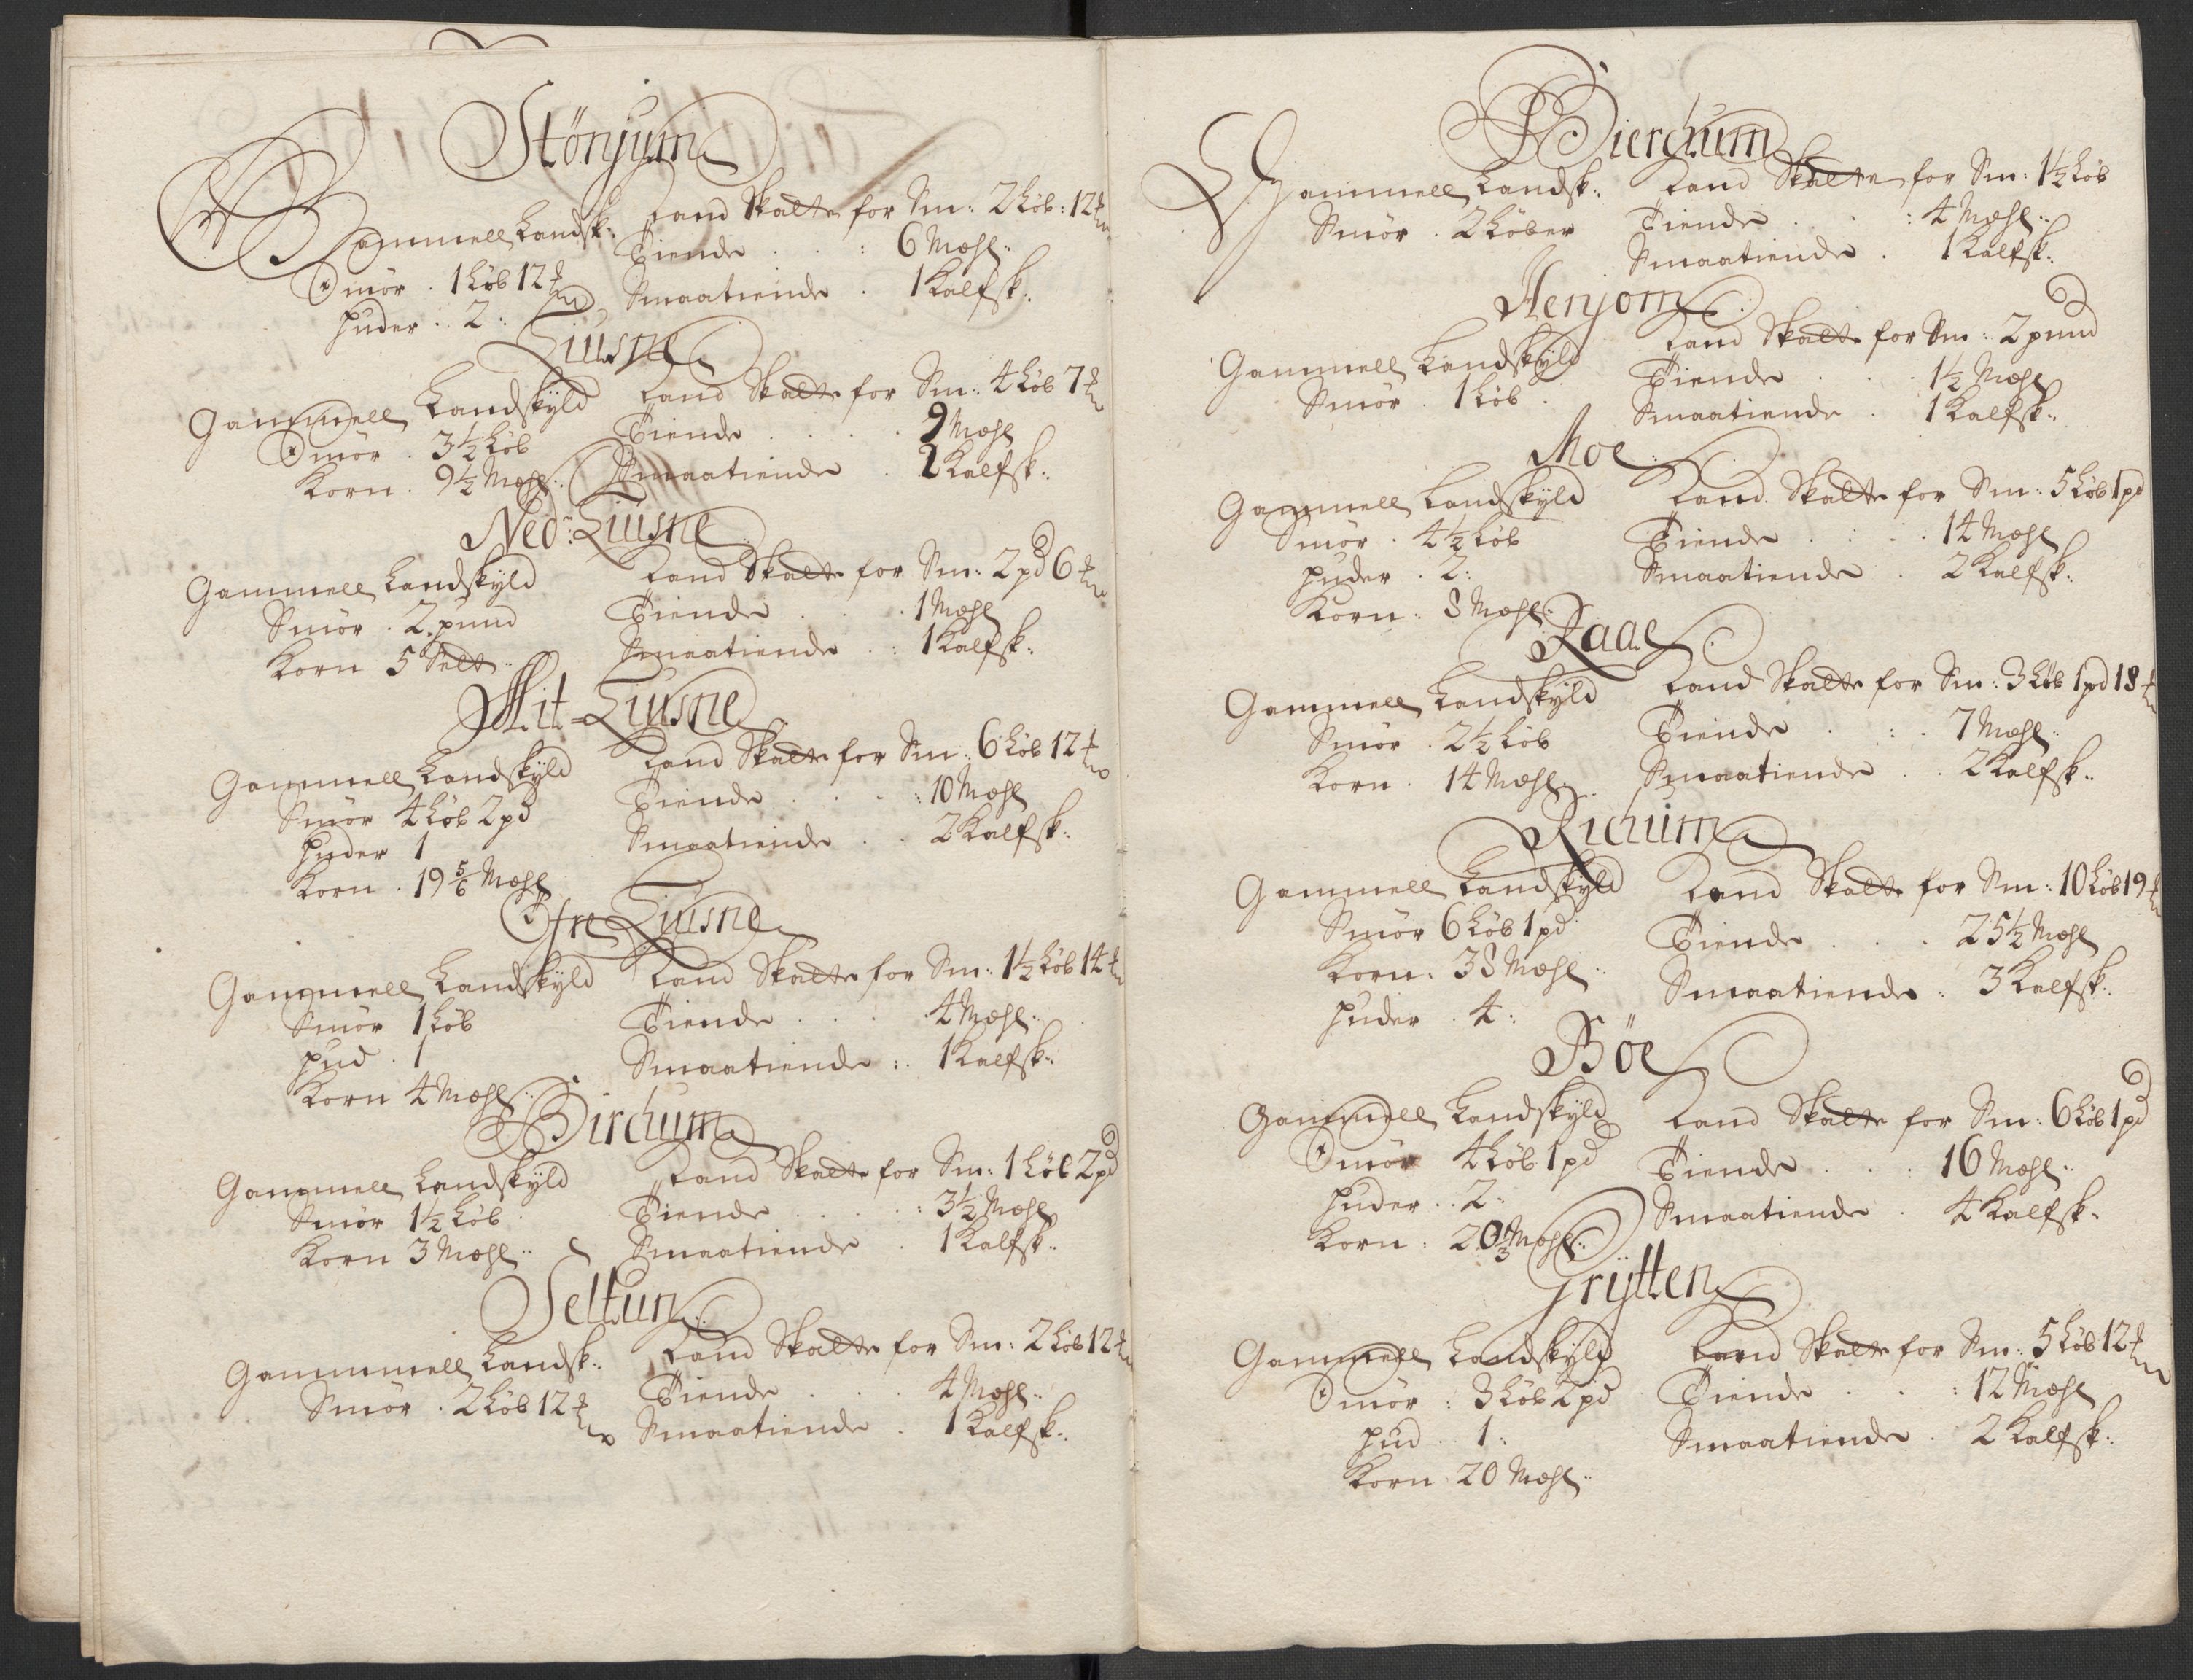 Stönjum
Gammell Landsk: Land Skatte for Sm: 2 Løb: 12 ℔
Smör . 1 Løb 12 ℔ Tiende . . : 6 Mæhl:
Huder . 2 : Smaatiende . 1 Kalfsk:
Liusne
Gammell Landskÿld Land Skatte for Sm: 4 Løb 7 ℔
Smör . 3½ Løb Tiende . . . . 9 Mæhl
Korn . 9½ Mæhl: Smaatiende . 1 Kalfsk:
Ned: Liusne
Gammell Landskÿld Land Skatte for Sm: 2 pd 6 ℔
Smör . 2 pund Tiende . . . 1 Mæhl
Korn 5 Selt: Smaatiende . : 1 Kalfsk:
Mit-Liusne
Gammell Landskÿld Land Skatte for Sm: 6 Løb 12 ℔
Smör 4 Løb 2 pd Tiende . . . : 10 Mæhl
Huder 1 Smaatiende . . 2 Kalfsk:
Korn . 19 5/6 Mæhl
Öfre Liusne
Gammell Landskÿld Land Skatte for Sm: 1½ Løb 14 ℔
Smör 1 Løb Tiende . . . 4 Mæhl:
Hud . 1 Smaatiende : . 1 Kalfsk:
Korn 4 Mæhl:
Birchum
Gammell Landskÿld Land Skatte for Sm: 1 Løb 2 pd
Smör 1½ Løb Tiende . . . . : 3½ Mæhl
Korn 3 Mæhl: Smaatiende . 1 Kalfsk:
Seltun
Gammell Landsk: Land Skatte for Sm: 2 Løb 12 ℔
Smör . 2 Løb 12 ℔ Tiende . . . 4 Mæhl:
Smaatiende . 1 Kalfsk:
Bierchum
Gammell Landsk: Land Skatte for Sm: 1½ Løb
Smör . 2 Løber Tiende . . : 4 Mæhl:
Smaatiende . 1 Kalfsk:
Henjom
Gammell Landskÿld Land Skatte for Sm: 2 pund
Smör . 1 Løb . Tiende . . . 1½ Mæhl
Smaatiende . 1 Kalfsk:
Moe
Gammell Landskÿld Land Skatte for Sm: 5 Løb 1 pd
Smör . 4½ Løb Tiende . : . . 14 Mæhl
Huder . 2 : Smaatiende . 2 Kalfsk:
Korn : 8 Mæhl:
Raae
Gammell Landskÿld Land Skatte for Sm: 3 Løb 1 pd 18 ℔
Smör . 2½ Løb Tiende . : . 7 Mæhl:
Korn . 14 Mæhl Smaatiende . . 2 Kalfsk:
Richum
Gammell Landskÿld Land Skatte for Sm: 10 Løb 19 ℔
Smör 6 Løb 1 pd Tiende . . . 25½ Mæhl
Korn : 38 Mæhl: Smaatiende : 3 Kalfsk:
Huder . 4 :
Böe
Gammell Landskÿld Land Skatte for Sm: 6 Løb 1 pd
Smör 4 Løb 1 pd Tiende . . . 16 Mæhl:
Huder . . 2 : Smaatiende . 4 Kalfsk:
Korn : 20⅓ Mæhl:
Grÿtten
Gammell Landskÿld Land Skatte for Sm: 5 Løb 12 ℔
Smör : 3 Løb 2 pd Tiende . . : 12 Mæhl
Hud . 1 : Smaatiende . 2 Kalfsk:
Korn 20 Mæhl: